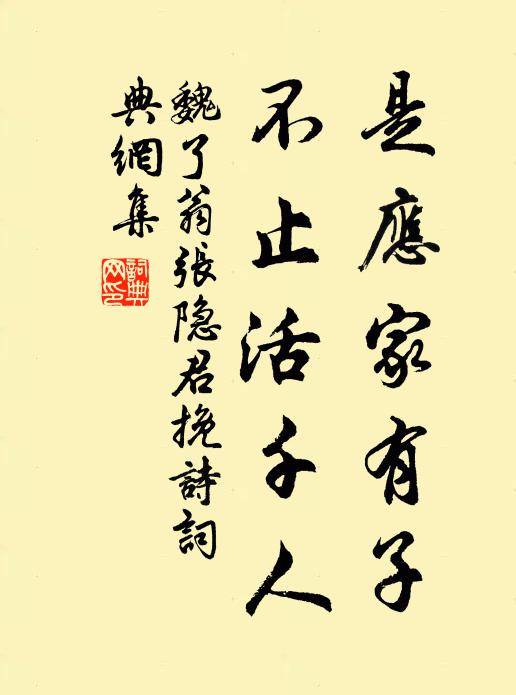 是應家有子
不止活千人
魏了翁張隐君挽詩詞
典網集
詞典
网印